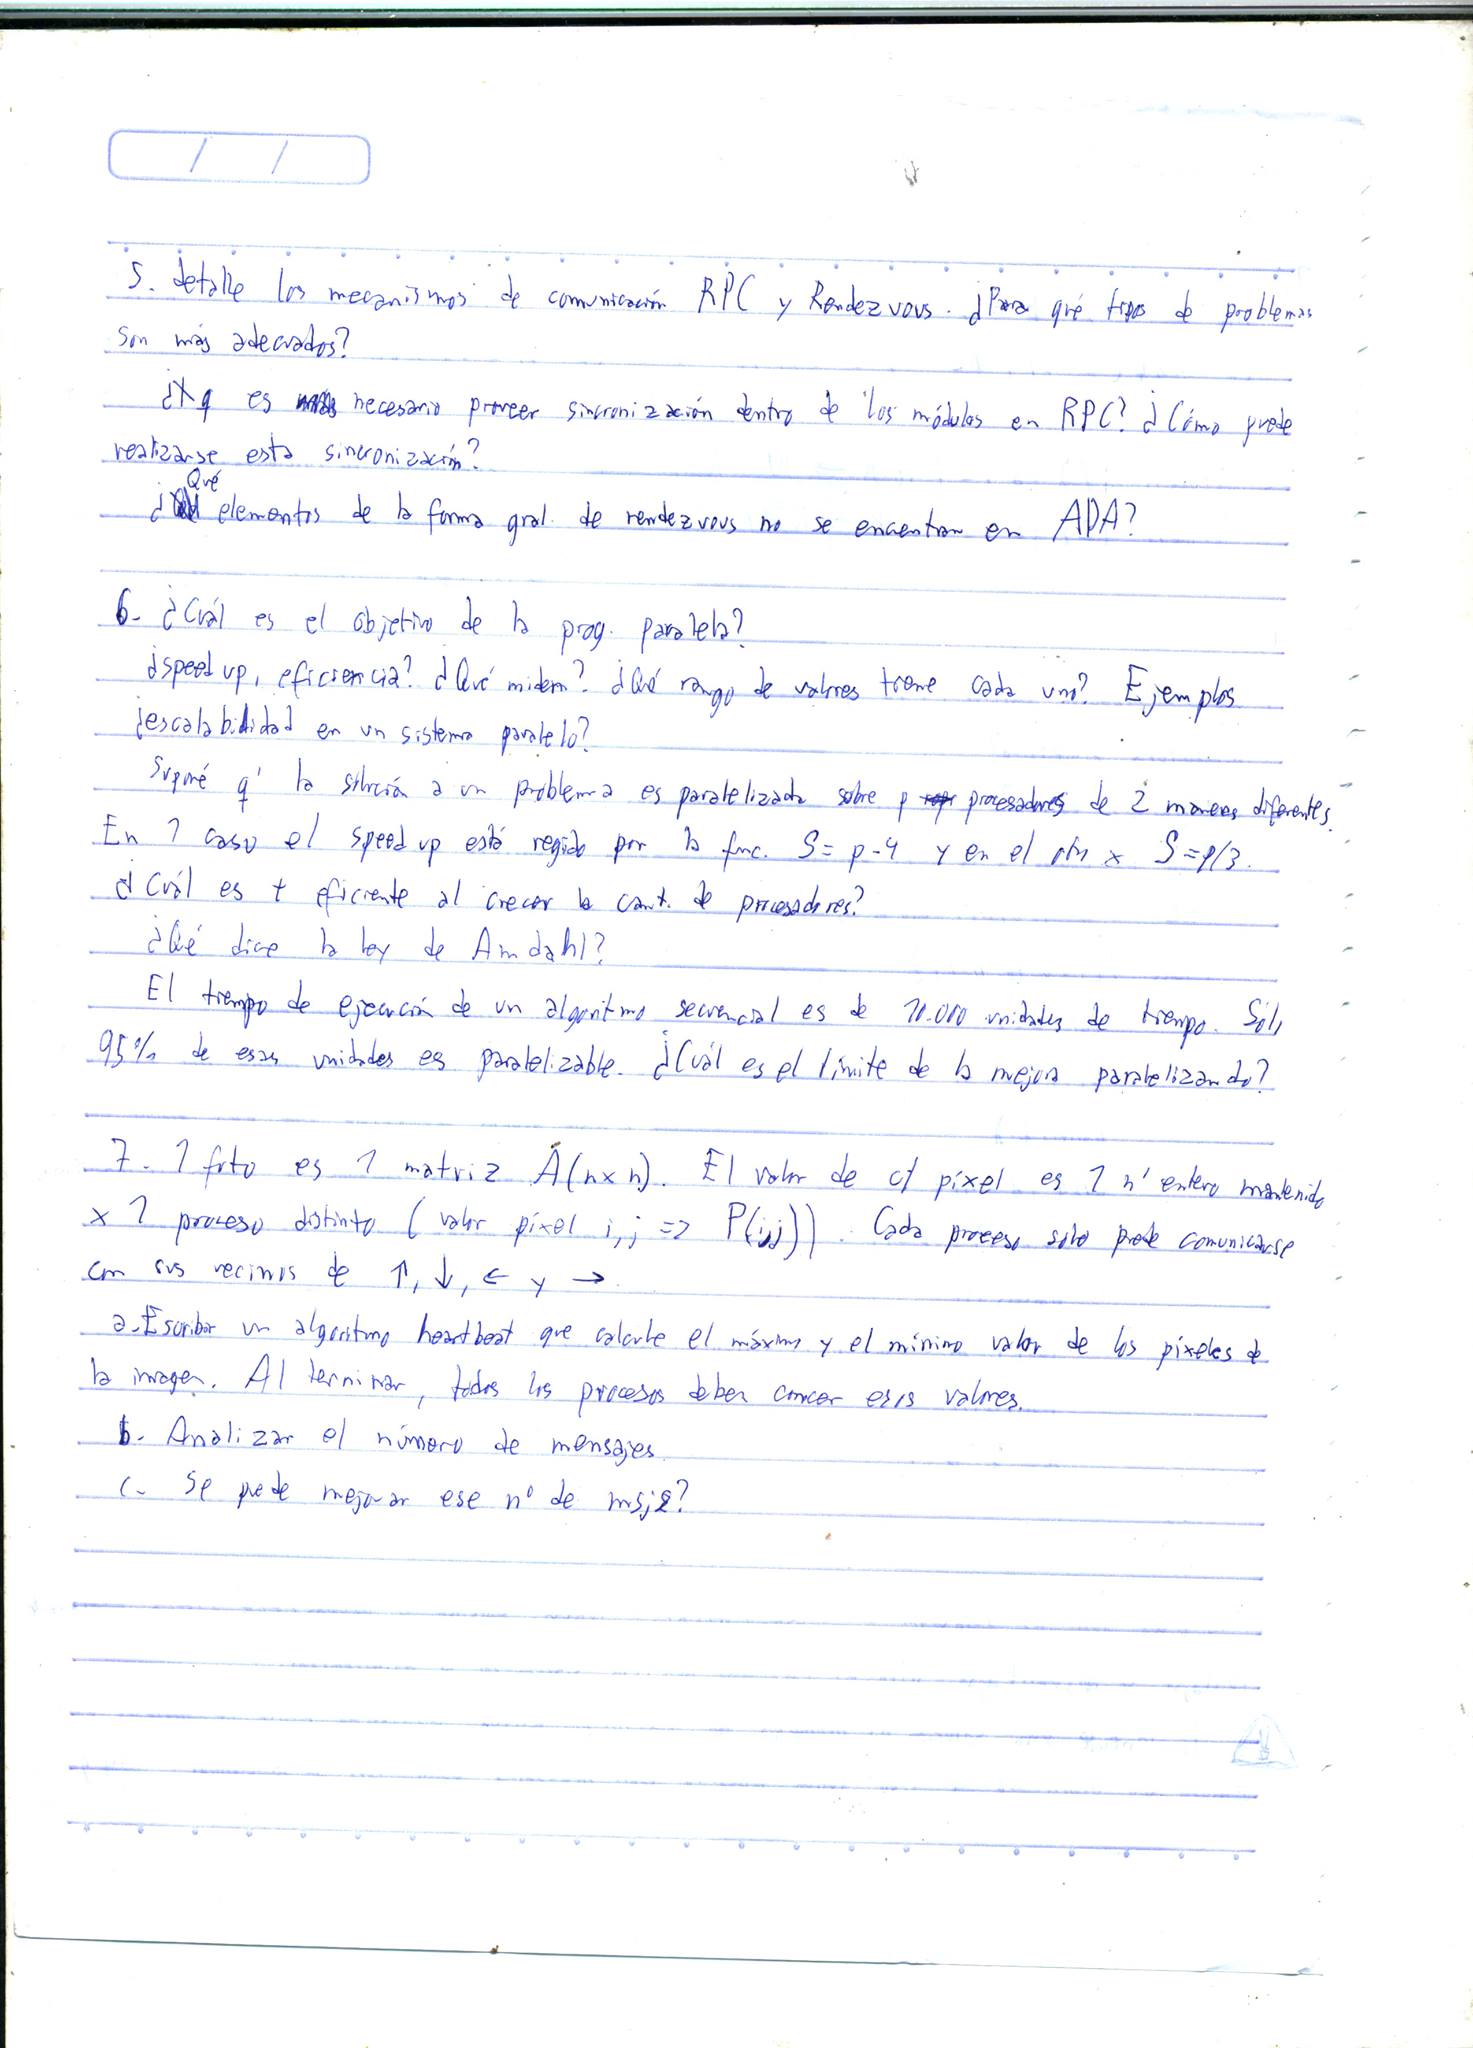 / /
5. detalle los mecanismos de comunicación RPC y Rendezvous. ¿Para qué tipos de problemas
son más adecuados?
¿X q es necesario proveer sincronización dentro de los módulos en RPC? ¿Cómo puede
realizarse esta sincronización?
¿Qué elementos de la forma gral. de rendezvous no se encuentran en ADA?
6- ¿Cuál es el objetivo de la prog. paralela?
¿speed up, eficiencia? ¿Qué miden? ¿Qué rango de valores tiene cada uno? Ejemplos
¿escalabilidad en un sistema paralelo?
Suponé q' la solución a un problema es paralelizada sobre p procesadores de 2 maneras diferentes.
En 1 caso el speed up está regido por la func. S = p-4 y en el otro x S = p/3.
¿Cuál es + eficiente al crecer la cant. de procesadores?
¿Qué dice la ley de Amdahl?
El tiempo de ejecución de un algoritmo secuencial es de 10.000 unidades de tiempo. Sólo
95% de esas unidades es paralelizable. ¿Cuál es el límite de la mejora paralelizando?
7- 1 foto es 1 matriz A(n x n). El valor de c/ píxel es 1 n° entero mantenido
x 1 proceso distinto (valor píxel i,j => P(i,j)). Cada proceso sólo puede comunicarse
con sus vecinos de ↑, ↓, ← y →
a- Escribir un algoritmo heartbeat que calcule el máximo y el mínimo valor de los píxeles de
la imagen. Al terminar, todos los procesos deben conocer esos valores.
b- Analizar el número de mensajes
c- Se puede mejorar ese n° de msjs?